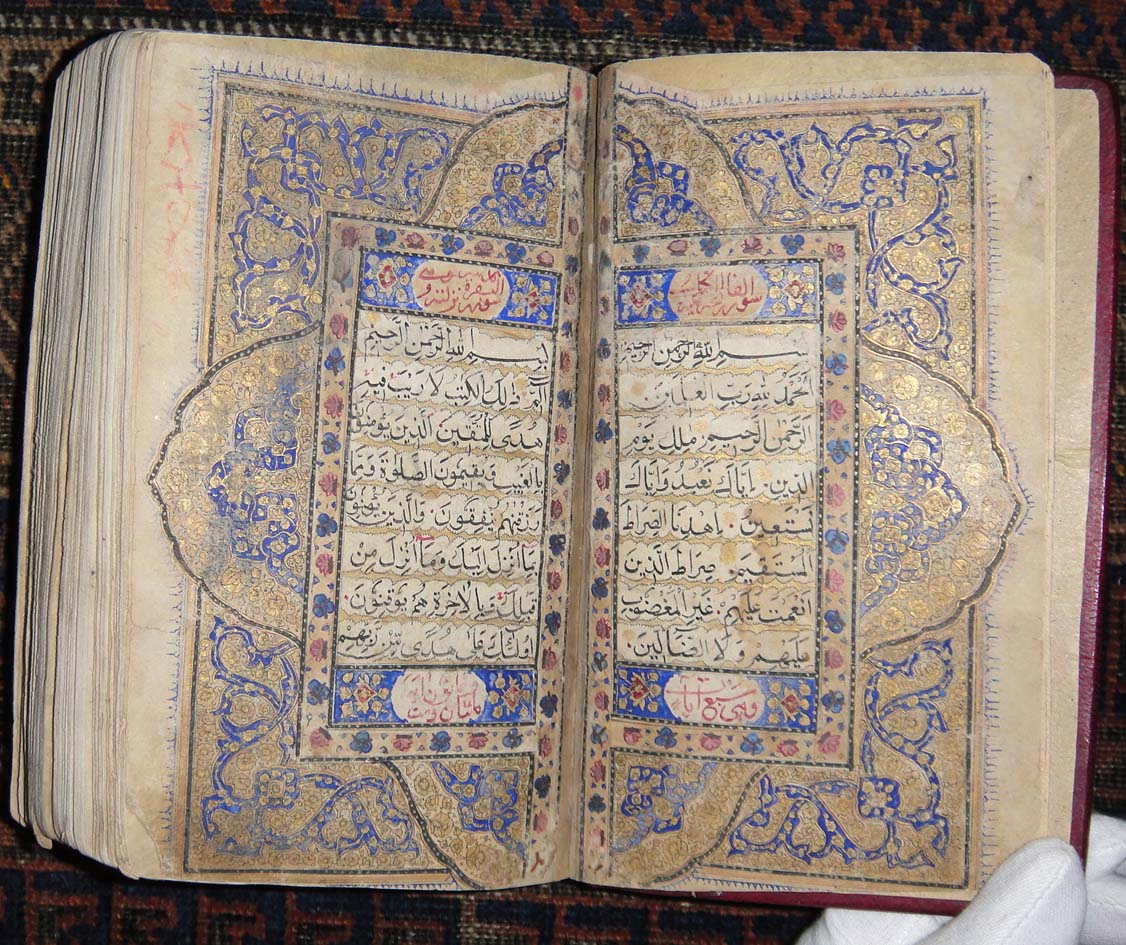 سورة الفاتحة الكتاب
بسم الله الرحمن الرحيم
الحمد لله رب العلمين
الرحمن الرحيم ملك يوم
الدين اياك نعبد واياك
نستعين اهدنا الصراط
المستقيم صراط الذين
انعمت عليهم غير المغضوب
عليهم ولا الضالين
وهي سبع آيات
سورة البقرة
بسم الله الرحمن الرحيم
الم ذلك الكتب لا ريب فيه
هدى للمتقين الذين يؤمنون
بالغيب ويقيمون الصلوة ومما
رزقنهم ينفقون والذين يؤمنون
بما انزل اليك وما انزل من
قبلك وبالاخرة هم يوقنون
اولئك على هدى من ربهم
مائتان وست